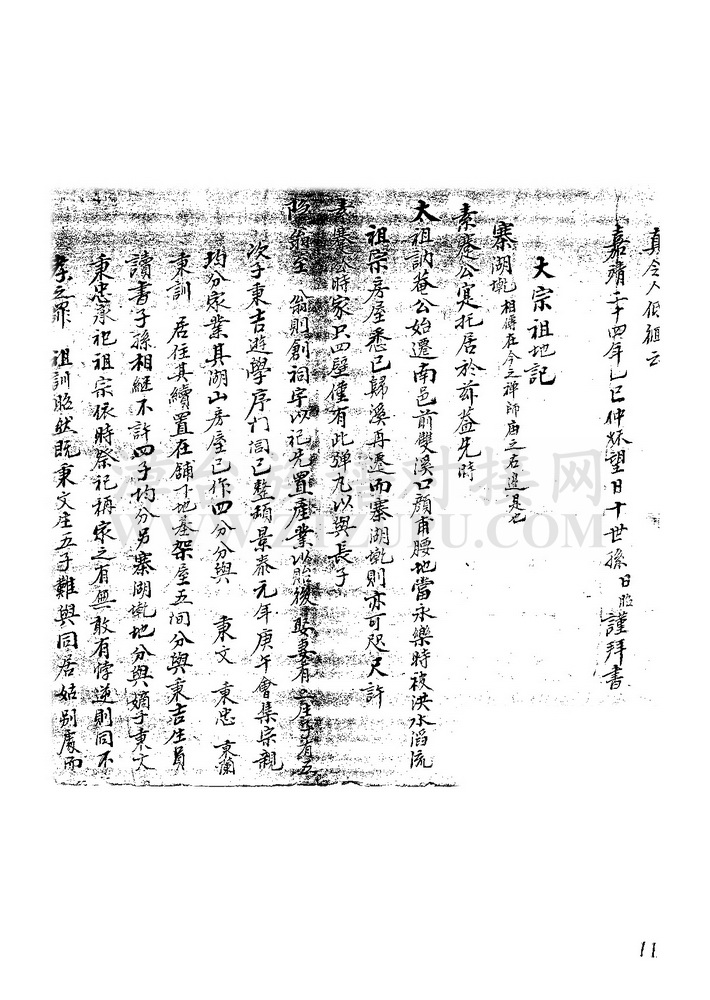 真令人低徊云
嘉靖二十四年乙巳仲秋望日十世孫日照謹拜書
大宗祖地記
寨湖墘 相傳在今之禪師庙之右邊是也
素菴公寔托居於茲益先時
太祖訥菴公始遷南邑前雙溪口顏甫腰地當永樂時被洪水滔流
祖宗房屋悉已歸溪再遷而寨湖墘則亦可咫尺許
時家只四壁僅有此彈丸以與長子
翁至 翁則創祠宇以祀先置產業以貽後娶妻有 五
次子秉吉遊學序門閭已整頓景泰元年庚午會集宗親
均分家業其湖山房屋已作四分分與 秉文 秉忠 秉蘭
秉訓 居住其續置在舖下地基架屋五间分與秉吉生員
讀書子孫相継不許四子均分另寨湖墘地分與嫡子秉文
秉忠承祀祖宗依時祭祀稱家之有無敢有悖逆則同不
孝之罪 祖訓昭然既秉文庄五子難與同居姑别處而
11
源台族譜对接网
WWW.ZTZUPU.COM